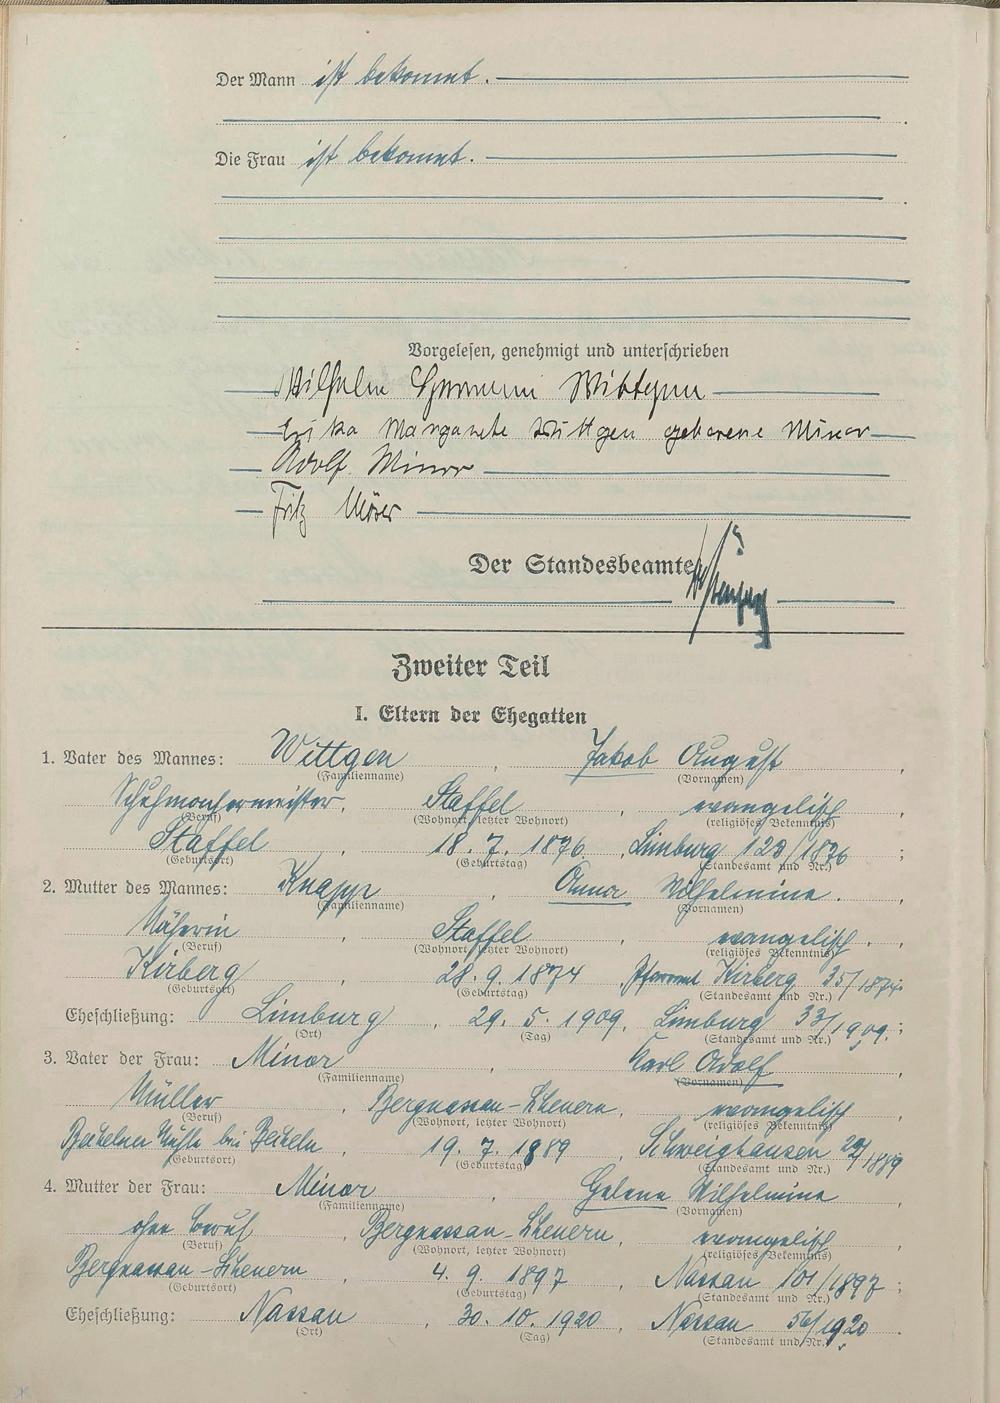 Der Mann ist bekannt.
Die Frau ist bekannt.
Vorgelesen, genehmigt und unterschrieben
Wilhelm Hermann Wittgen
Erika Margarete Wittgen geborene Minor
Adolf Minor
Fritz Möser
Der Standesbeamte
Zweiter Teil
I. Eltern der Ehegatten
1. Vater des Mannes: Wittgen, Jakob August,
(Familienname) (Vornamen)
Schuhmachermeister, Staffel, evangelisch
(Beruf) (Wohnort, letzter Wohnort) (religiöses Bekenntnis)
Staffel, 18. 7. 1876, Limburg 123/1876;
(Geburtsort) (Geburtstag) (Standesamt und Nr.)
2. Mutter des Mannes: Knapp, Anna Wilhelmine.
(Familienname) (Vornamen)
Näherin, Staffel, evangelisch.
(Beruf) (Wohnort, letzter Wohnort) (religiöses Bekenntnis)
Kirberg, 28. 9. 1874, Pfarramt Kirberg 35/1874
(Geburtsort) (Geburtstag) (Standesamt und Nr.)
Eheschließung: Limburg, 29. 5. 1909, Limburg 33/1909;
(Ort) (Tag) (Standesamt und Nr.)
3. Vater der Frau: Minor, Karl Adolf,
(Familienname) (Vornamen)
Müller, Bergnassau-Scheuern, evangelisch
(Beruf) (Wohnort, letzter Wohnort) (religiöses Bekenntnis)
Bechelner Mühle bei Becheln, 19. 7. 1889 Schweighausen /1889
(Geburtsort) (Geburtstag) (Standesamt und Nr.)
4. Mutter der Frau: Minor, Helene Wilhelmine,
(Familienname) (Vornamen)
ohne Beruf, Bergnassau-Scheuern, evangelisch,
(Beruf) (Wohnort, letzter Wohnort) (religiöses Bekenntnis)
Bergnassau-Scheuern, 4. 9. 1897, Nassau 101/1897;
(Geburtsort) (Geburtstag) (Standesamt und Nr.)
Eheschließung: Nassau, 30. 10. 1920, Nassau 56/1920.
(Ort) (Tag) (Standesamt und Nr.)